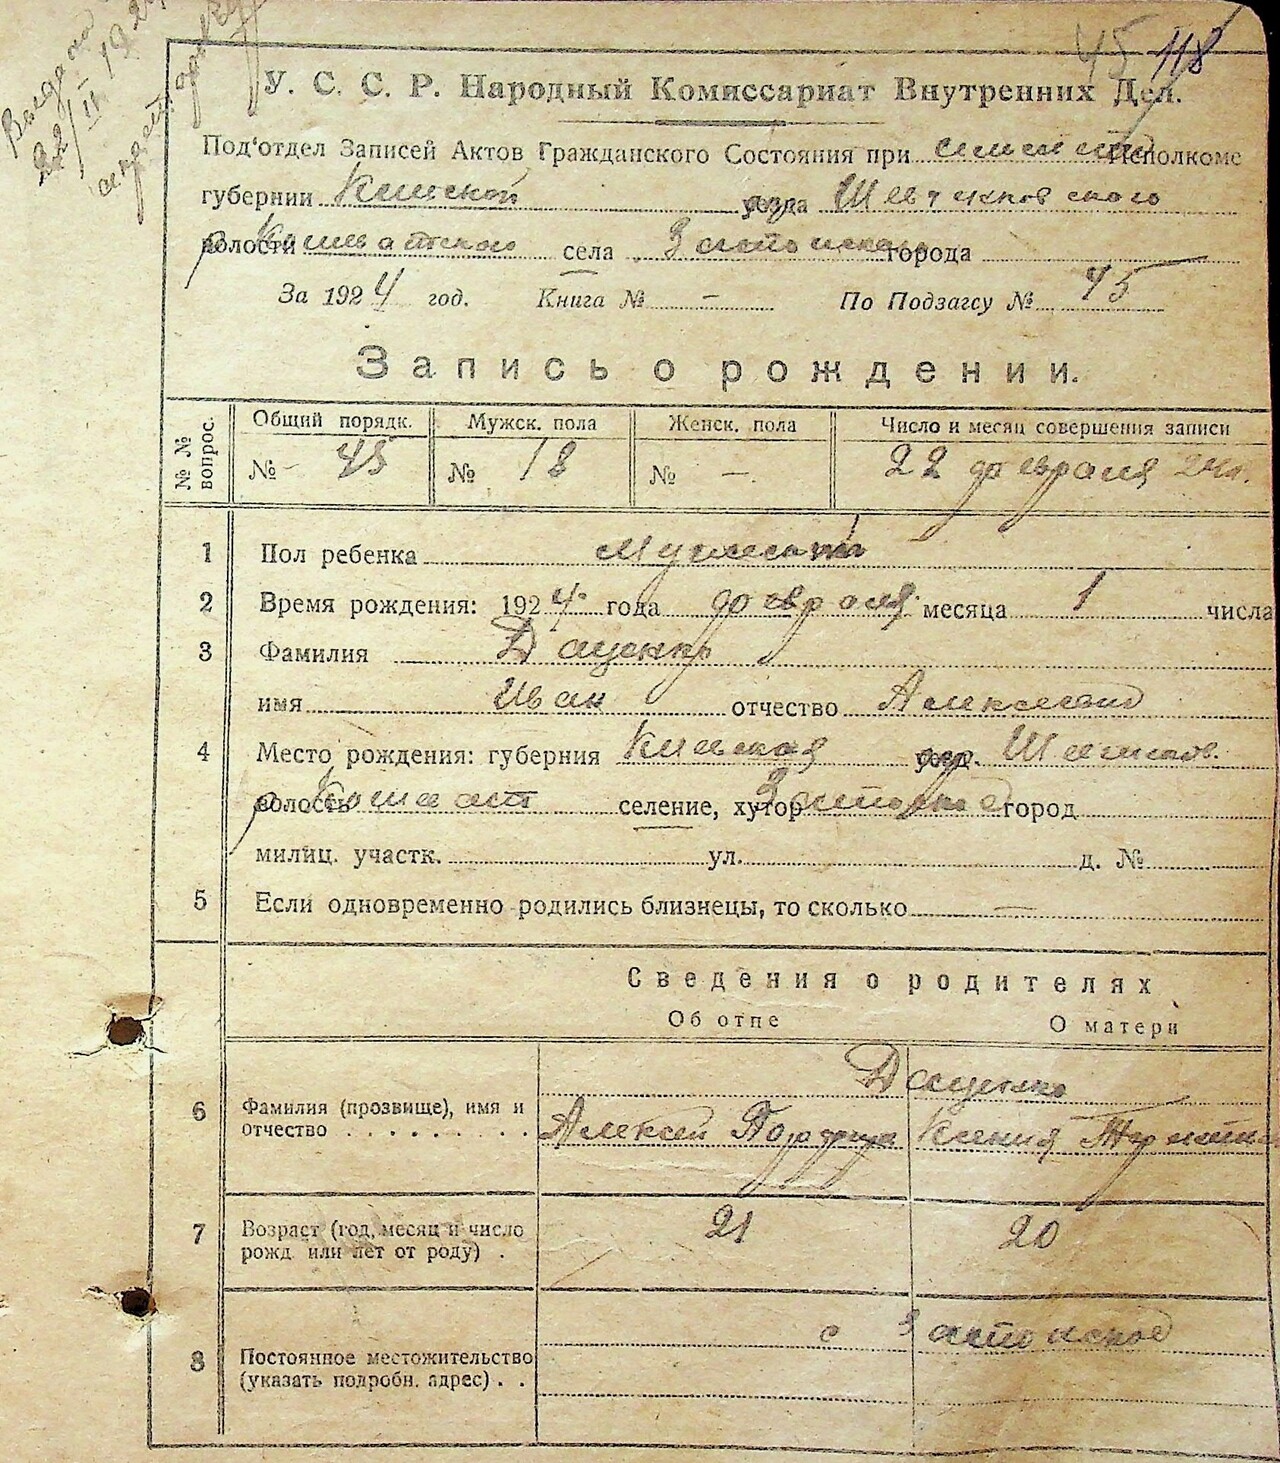 22/II 192
45 118
У. С. С. Р. Народный Комиссариат Внутренних Дел.
Под'отдел Записей Актов Гражданского Состояния при Исполкоме
губернии Киевской уезда Шевченковского
волости села города
За 1924 год. Книга № – По Подзагсу № 45
Запись о рождении.
№ № вопрос. Общий порядк. Мужск. пола Женск. пола Число и месяц совершения записи
№ 45 № 18 № – 22 февраля 24 г.
1 Пол ребенка мужеский
2 Время рождения: 1924 года февраля месяца 1 числа
3 Фамилия Даценко
имя Иван отчество Алексеевич
4 Место рождения: губерния Киевская окр. Шевченков.
волость Кошеват селение, хутор город
милиц. участк. ул. д. №
5 Если одновременно родились близнецы, то сколько —
Сведения о родителях
Об отце О матери
Даценко
6 Фамилия (прозвище), имя и отчество . . . . . . . . . Алексей Ксения
7 Возраст (год, месяц и число рожд. или лет от роду) . 21 20
8 Постоянное местожительство (указать подробн. адрес) . . с